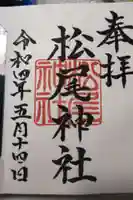 奉拝
松尾神社
令和四年五月十四日